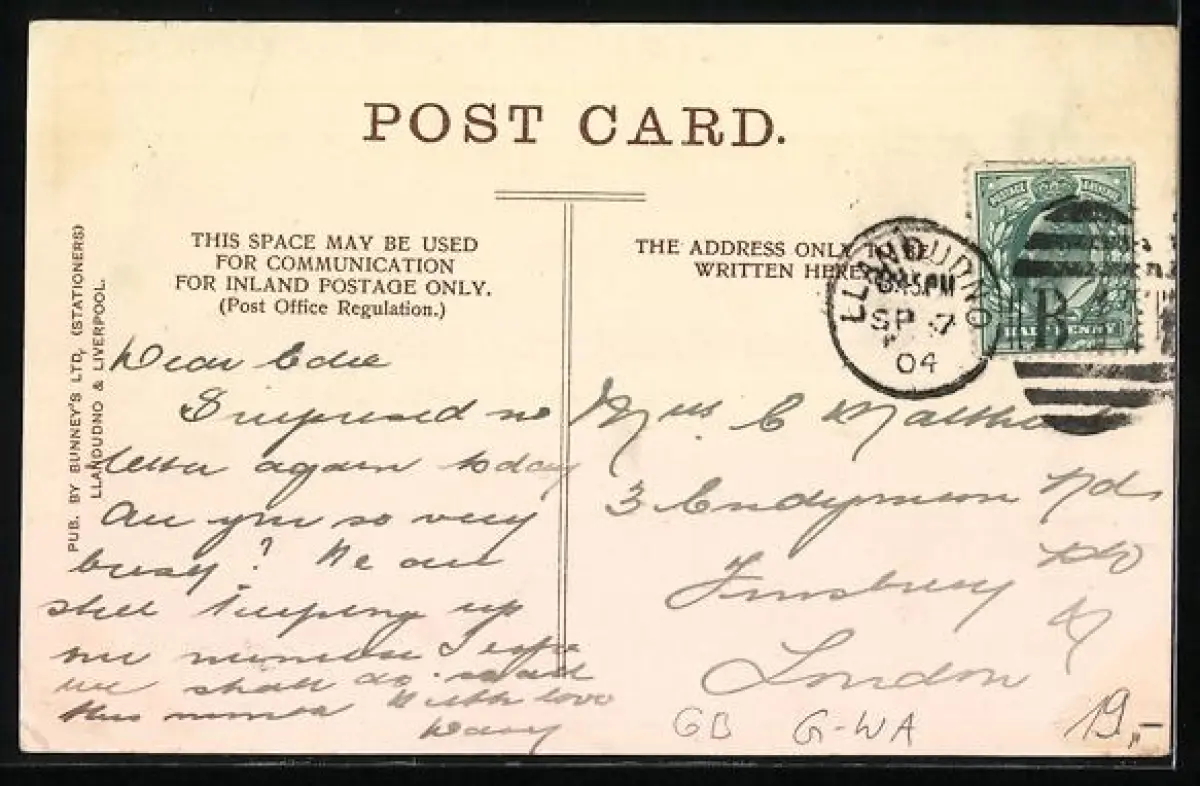 POST CARD.
THIS SPACE MAY BE USED
FOR COMMUNICATION
FOR INLAND POSTAGE ONLY.
(Post Office Regulation.)
THE ADDRESS ONLY TO BE
WRITTEN HERE
PUB. BY BUNNEY'S LTD, (STATIONERS)
LLANDUDNO & LIVERPOOL.
POSTAGE REVENUE
HALFPENNY
LLANDUDNO
45PM
SP 7
04
B
Dear Edie
I suppose no
letter again today
Are you so very
busy? We are
still keeping up
our numbers I
we shall do
this With love
Mrs C
3 Endymion Rd
Finsbury Pk
N
London
GB G-WA
19,-